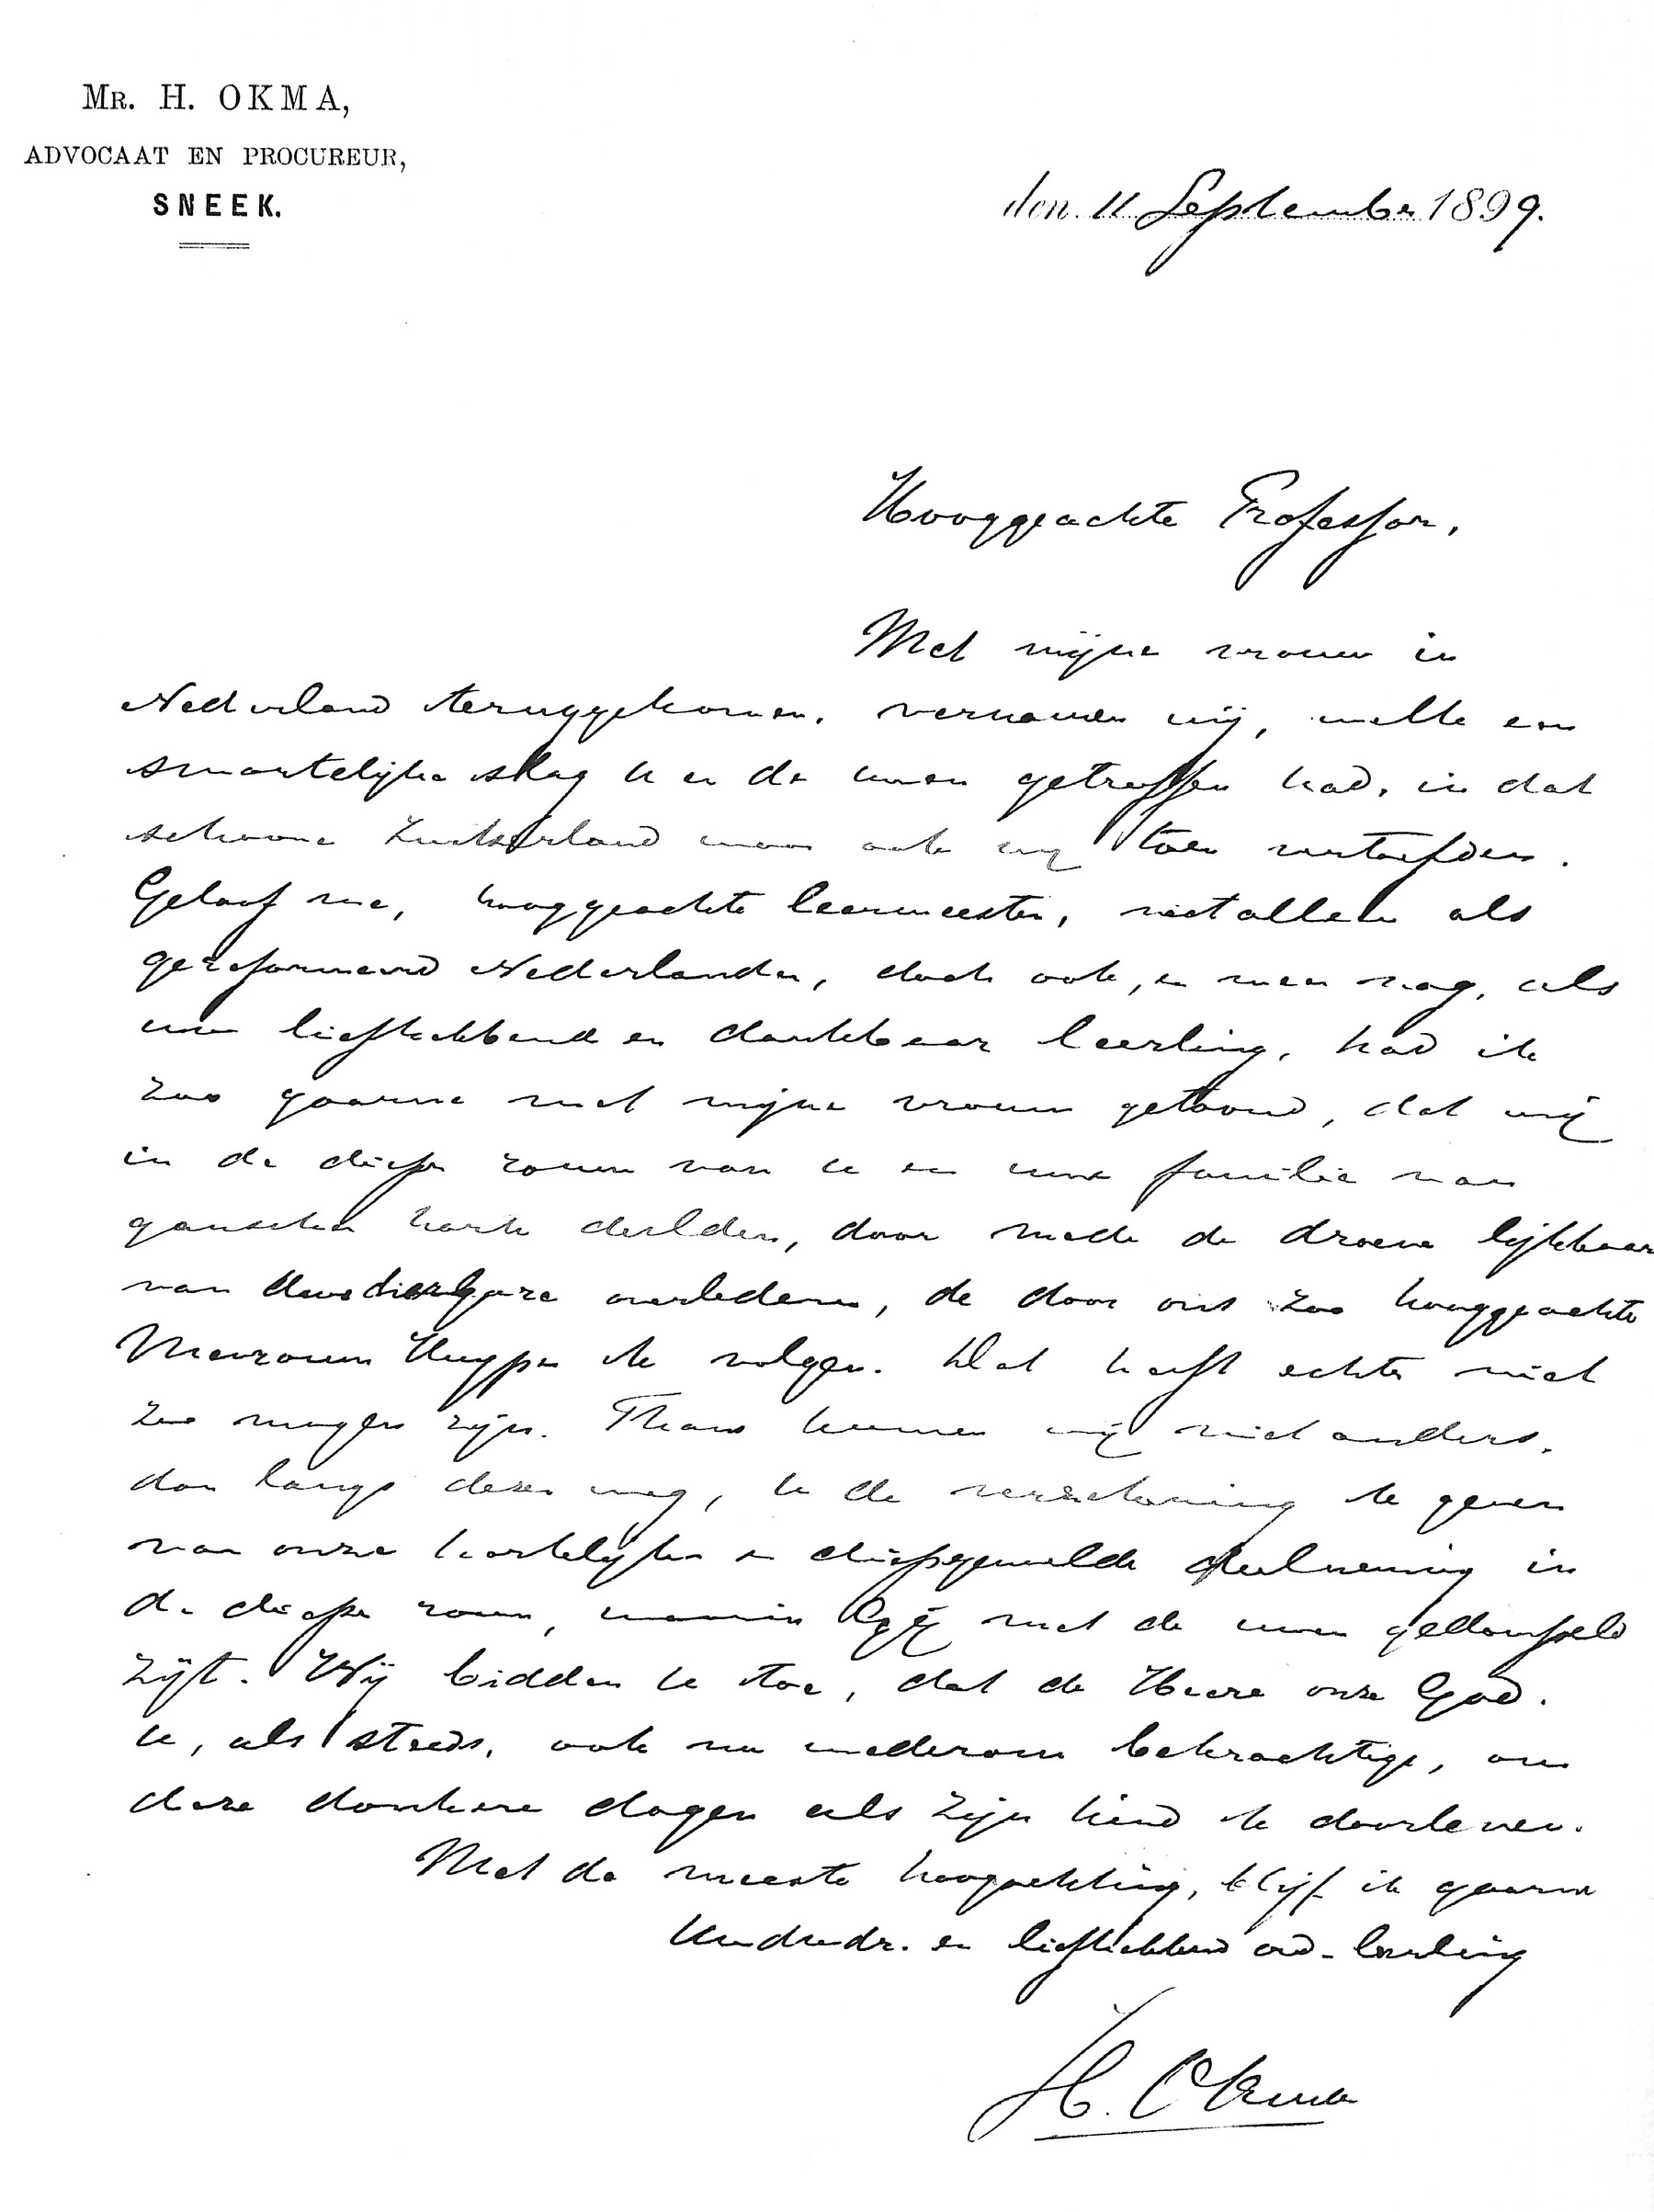 MR. H. OKMA,
ADVOCAAT EN PROCUREUR,
SNEEK.
den 11 September 1899.
Hooggeachte Professor,
Met mijne vrouw in
Nederland teruggekomen, vernamen wij, welke een
smartelijke slag u en de uwen getroffen had, in dat
schoone Zwitserland waar ook wij toen vertoefden.
Geloof me, hooggeachte leermeester, niet alleen als
gereformeerd Nederlander, doch ook, en meer nog, als
uw liefhebbend en dankbaar leerling, had ik
zoo gaarne met mijne vrouw getoond, dat wij
in de diepe rouw van u en uwe familie van
ganscher harte deelden, door mede de droeve lijkbaar
van Uwe dierbare overledene, de door ons zoo hooggeachte
Mevrouw Kuyper te volgen. Dat heeft echter niet
zoo mogen zijn. Thans kunnen wij niet anders,
dan langs dezen weg, u de verzekering te geven
van onze hartelijke en diepgevoelde deelneming in
de diepe rouw, waarin Gij met de uwen gedompeld
zijt. Wij bidden u toe, dat de Heere onze God,
u, als steeds, ook nu wederom bekrachtige, om
deze donkere dagen als Zijn kind te doorleven.
Met de meeste hoogachting, blijf ik gaarne
Uw dw dr. en liefhebbend oud-leerling
H. Okma